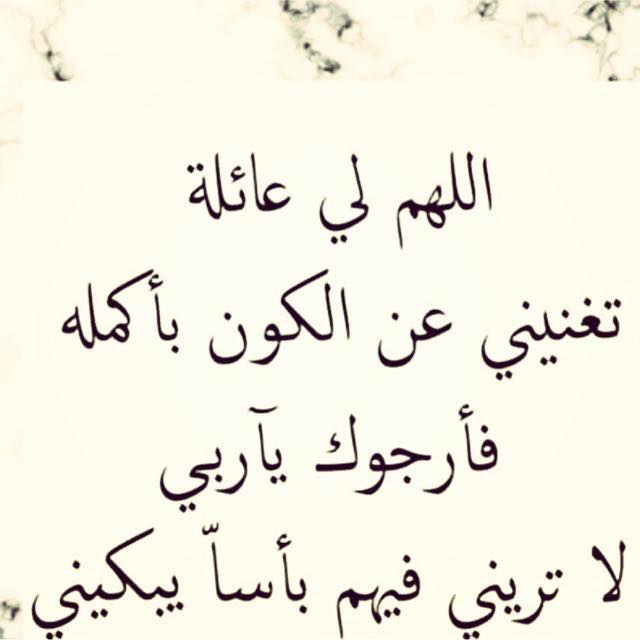 اللهم لي عائلة
تغنيني عن الكون بأكمله
فأرجوك يآربي
لا تريني فيهم بأساّ يبكيني